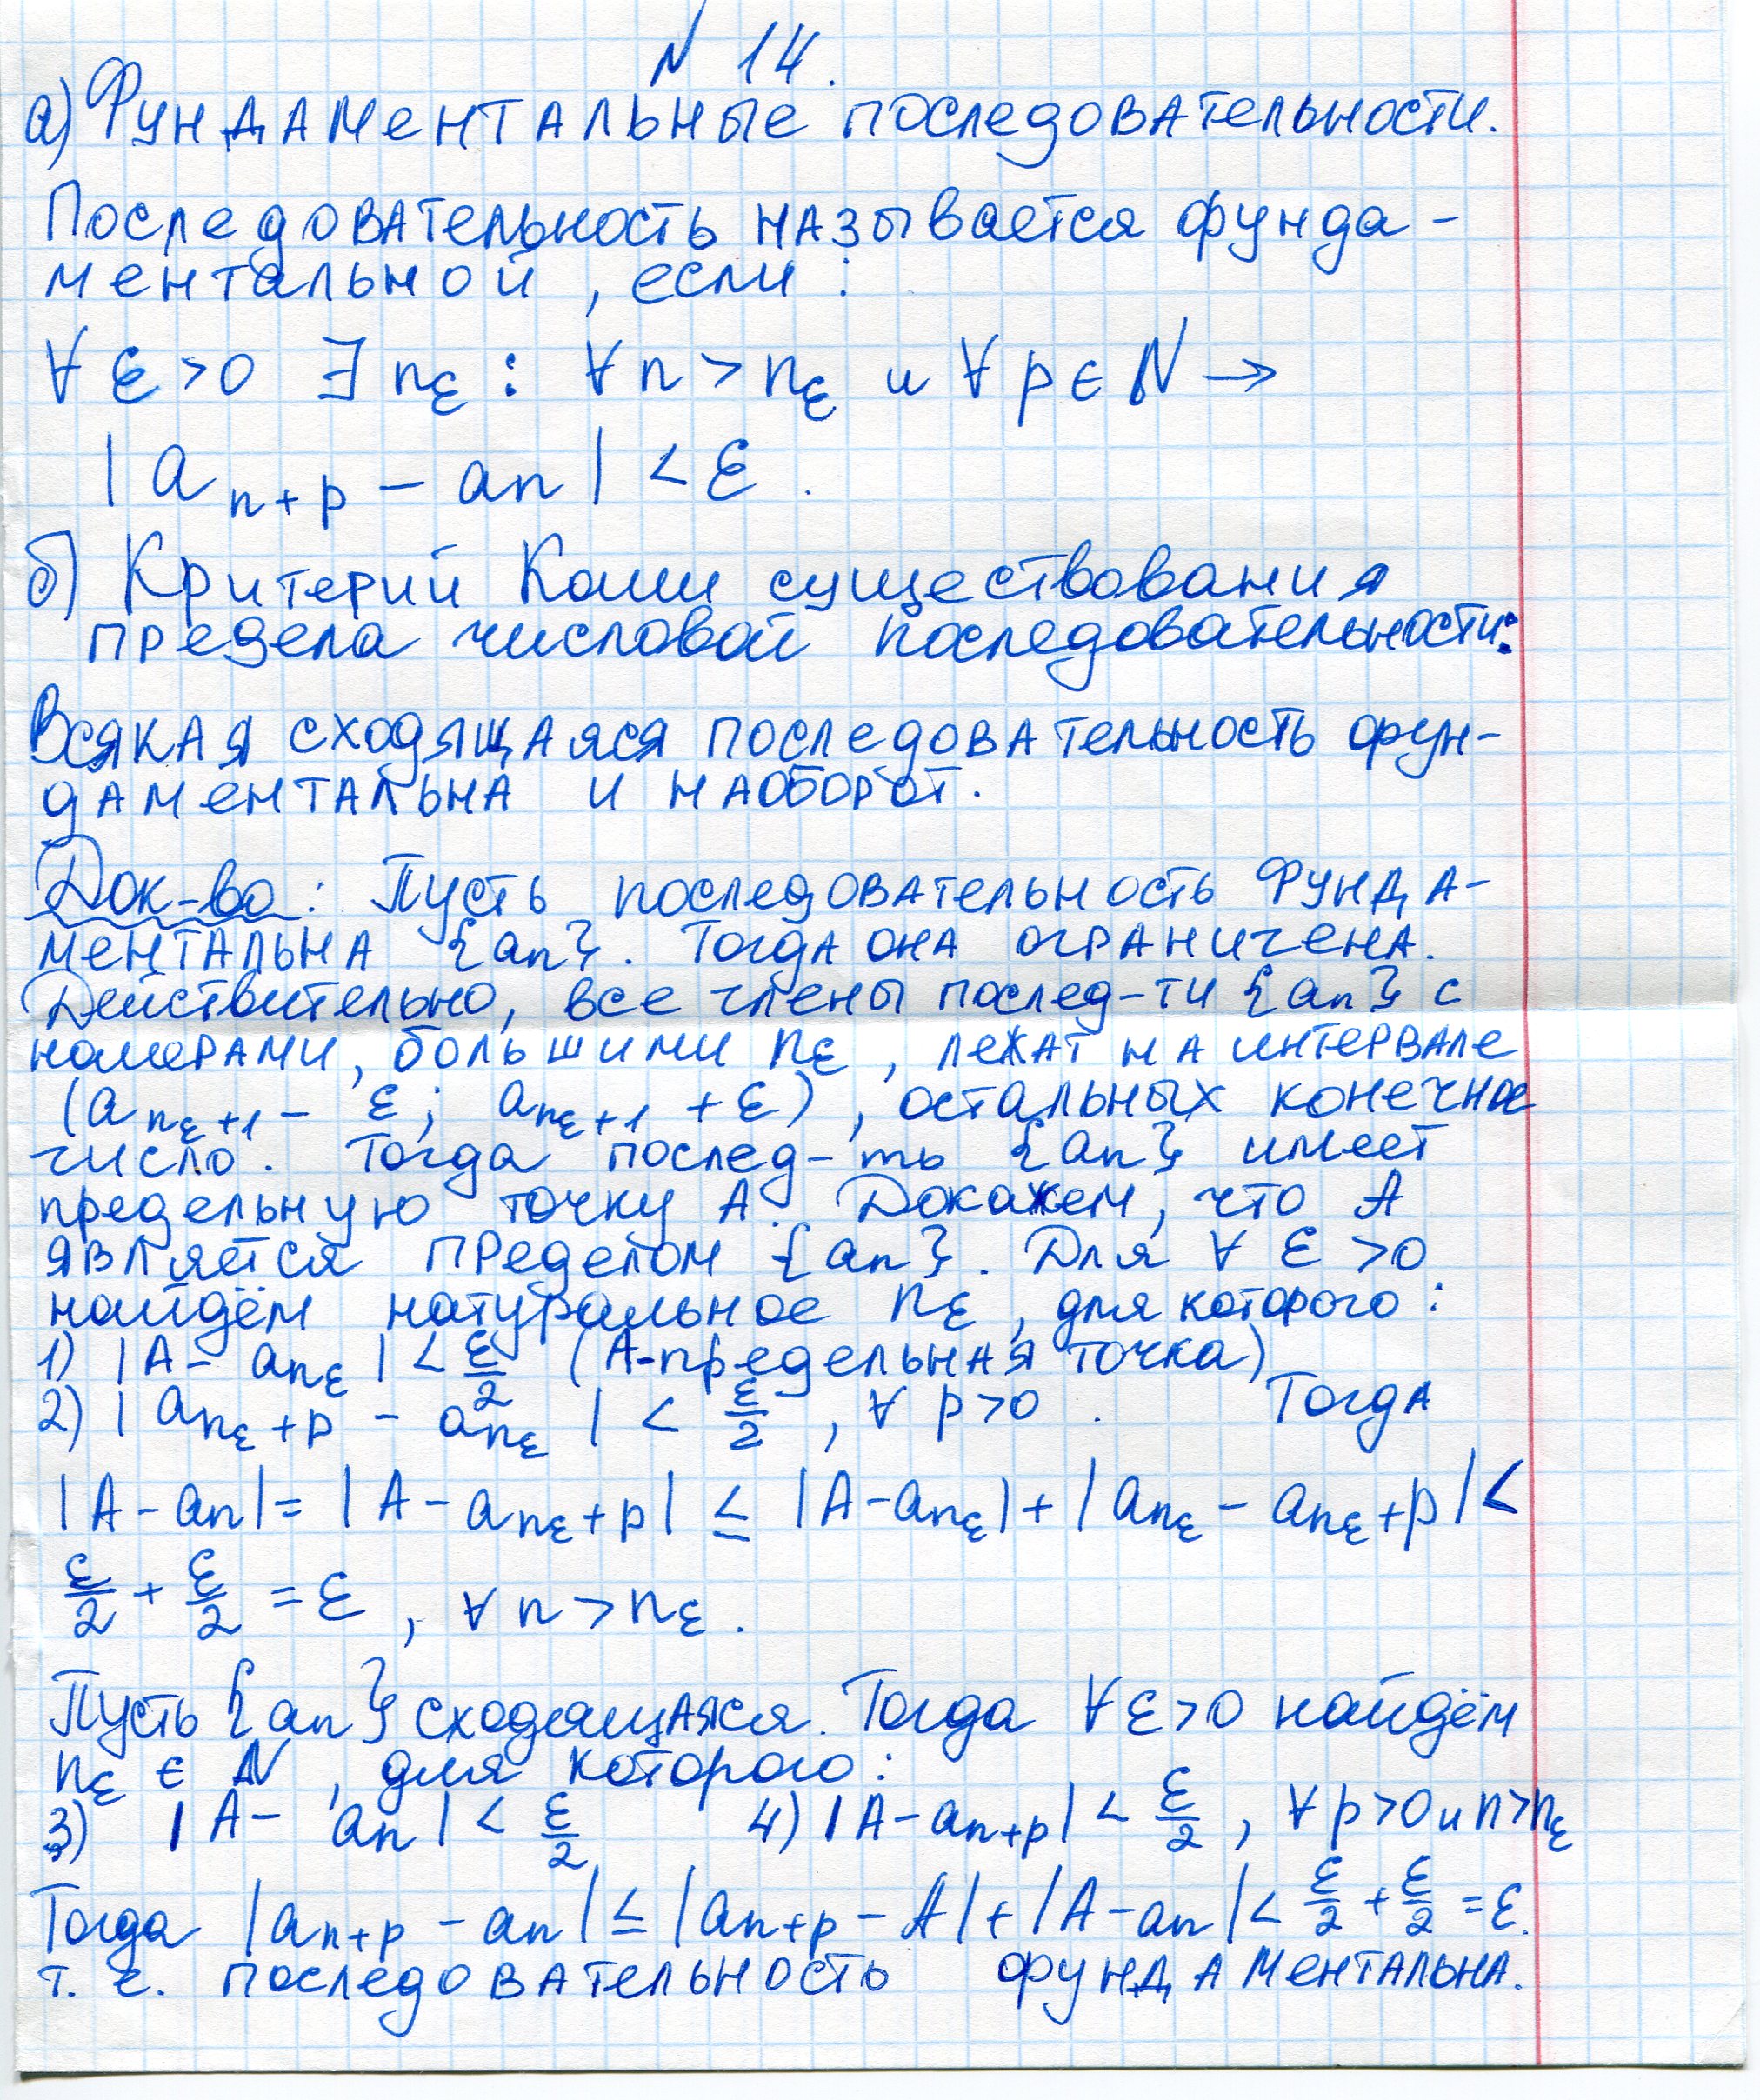 N 14.
а) Фундаментальные последовательности.
Последовательность называется фунда-
ментальной, если:
∀ ε > 0 ∃ n_ε : ∀ n > n_ε и ∀ p ∈ N →
| a_{n+p} − a_n | < ε.
б) Критерий Коши существования
предела числовой последовательности:
Всякая сходящаяся последовательность фун-
даментальна и наоборот.
Док-во: Пусть последовательность фунда-
ментальна {a_n}. Тогда она ограничена.
Действительно, все члены послед-ти {a_n} с
номерами, большими n_ε, лежат на интервале
(a_{n_ε+1} − ε; a_{n_ε+1} + ε), остальных конечное
число. Тогда послед-ть {a_n} имеет
предельную точку A. Докажем, что A
является пределом {a_n}. Для ∀ ε > 0
найдём натуральное n_ε, для которого:
1) |A − a_{n_ε}| < ε/2 (A-предельная точка)
2) |a_{n_ε+p} − a_{n_ε}| < ε/2, ∀ p > 0. Тогда
|A − a_n| = |A − a_{n_ε+p}| ≤ |A − a_{n_ε}| + |a_{n_ε} − a_{n_ε+p}| <
ε/2 + ε/2 = ε, ∀ n > n_ε.
Пусть {a_n} сходящаяся. Тогда ∀ ε > 0 найдём
n_ε ∈ N, для которого:
3) |A − a_n| < ε/2 4) |A − a_{n+p}| < ε/2, ∀ p > 0 и n > n_ε
Тогда |a_{n+p} − a_n| ≤ |a_{n+p} − A| + |A − a_n| < ε/2 + ε/2 = ε.
т. е. последовательность фундаментальна.